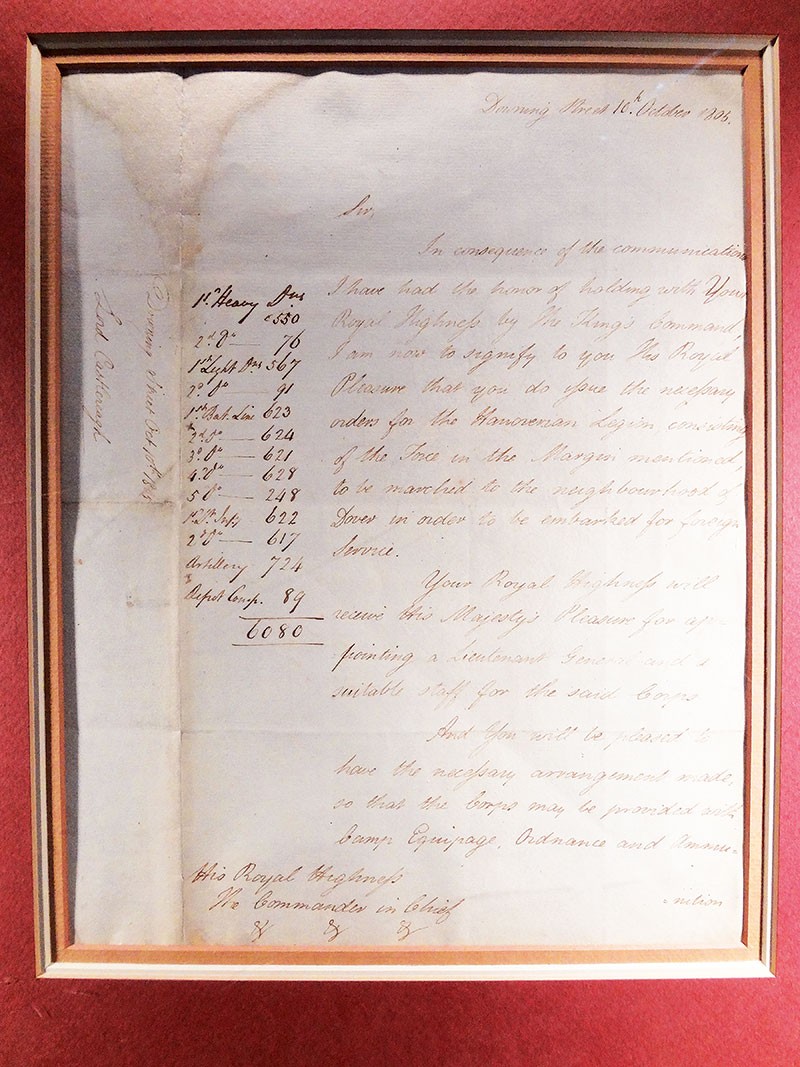 Downing Street 10th October 1805.
Sir,
In consequence of the communications
I have had the honor of holding with Your
Royal Highness by The King's Command,
I am now to signify to you His Royal
Pleasure that you do issue the necessary
orders for the Hanoverian Legion, consisting
of the Force in the Margin mentioned,
to be marched to the neighbourhood of
Dover in order to be embarked for foreign
Service.
Your Royal Highness will
receive His Majesty's Pleasure for ap-
pointing a Lieutenant General and a
suitable staff for the said Corps
And You will be pleased to
have the necessary arrangement made,
so that the Corps may be provided with
Camp Equipage, Ordnance and Ammu-
nition
1st Heavy Dns
550
2d Do — 76
1st Light Dns 567
2d Do — 91
1st Bat. Line 623
2d Do — 624
3d Do — 621
4 Do — 628
5 Do — 248
1st Lt. Infy 622
2d Do — 617
Artillery 724
Depot Comp. 89
6080
His Royal Highness
The Commander in Chief
&c &c &c
Downing Street Oct 10th 1805
Lord Castlereagh